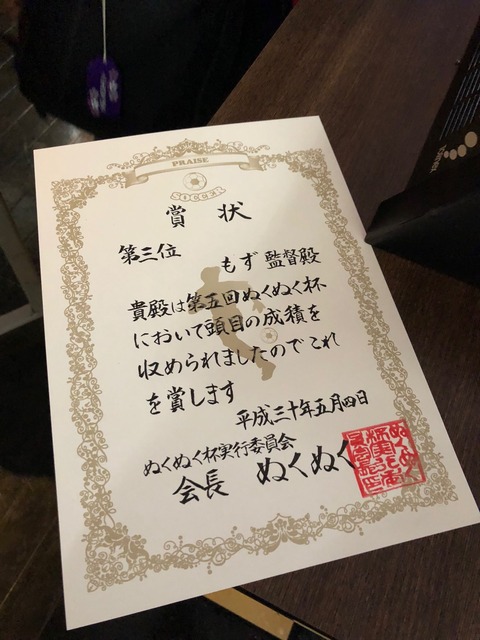 PRAISE
SOCCER
賞状
第三位
もず監督殿
貴殿は第五回ぬくぬく杯
において頭目の成績を
収められましたのでこれ
を賞します
平成三十年五月四日
ぬくぬく杯実行委員会
会長 ぬくぬく